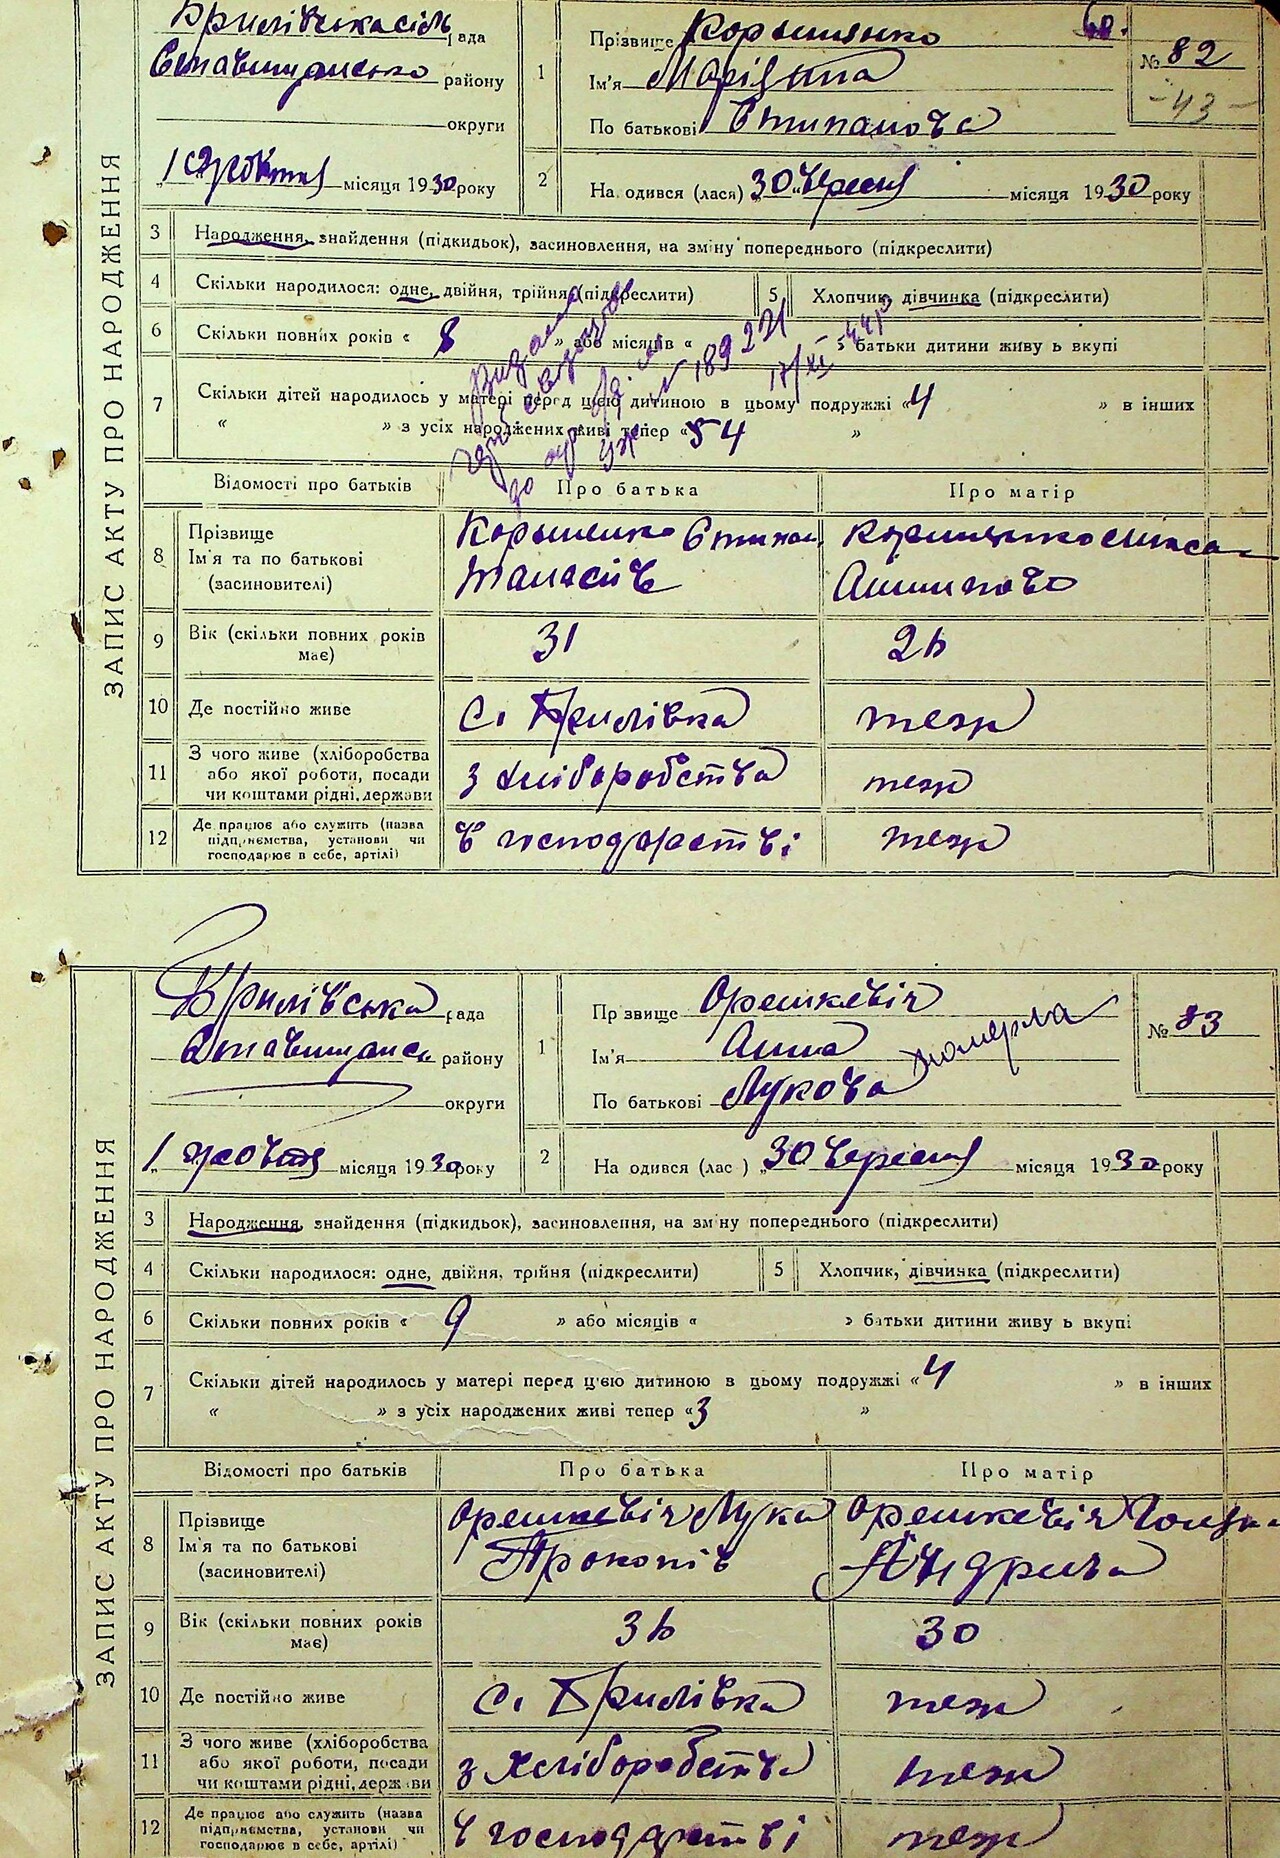 ЗАПИС АКТУ ПРО НАРОДЖЕННЯ
рада
Ставищансько району
округи
1 жовтня місяця 1930 року
1 Прізвище
Ім'я
По батькові Степанова
№ 82
-43-
2 На одився (лася) 30 Вересня місяця 1930 року
3 Народження, знайдення (підкидьок), засиновлення, на зміну попереднього (підкреслити)
4 Скільки народилося: одне, двійня, трійня (підкреслити) 5 Хлопчик, дівчинка (підкреслити)
6 Скільки повних років « 8 » або місяців « » батьки дитини живу ь вкупі
7 Скільки дітей народилось у матері перед цією дитиною в цьому подружжі «4 » в інших
« » з усіх народжених живі тепер «54 »
189221
Відомості про батьків Про батька Про матір
8 Прізвище
Ім'я та по батькові
(засиновителі)
9 Вік (скільки повних років має) 31 26
10 Де постійно живе с. Брилівка теж
11 З чого живе (хліборобства або якої роботи, посади чи коштами рідні, держави з хліборобства теж
12 Де працює або служить (назва підприємства, установи чи господарює в себе, артілі) в господарстві теж
ЗАПИС АКТУ ПРО НАРОДЖЕННЯ
Брилівська рада
Ставищанськ району
округи
1 жовтня місяця 1930 року
1 Пр звище Орешкевіч
Ім'я Анна
По батькові Лукова
померла
№ 83
2 На одився (лас ) 30 Вересня місяця 1930 року
3 Народження, знайдення (підкидьок), засиновлення, на зміну попереднього (підкреслити)
4 Скільки народилося: одне, двійня, трійня (підкреслити) 5 Хлопчик, дівчинка (підкреслити)
6 Скільки повних років « 9 » або місяців « » батьки дитини живу ь вкупі
7 Скільки дітей народилось у матері перед цією дитиною в цьому подружжі «4 » в інших
« » з усіх народжених живі тепер «3 »
Відомості про батьків Про батька Про матір
8 Прізвище Орешкевіч Лука Орешкевіч
Ім'я та по батькові Прокопів
(засиновителі)
9 Вік (скільки повних років має) 36 30
10 Де постійно живе с. Брилівка теж
11 З чого живе (хліборобства або якої роботи, посади чи коштами рідні, держави з Хліборобства теж
12 Де працює або служить (назва підприємства, установи чи господарює в себе, артілі) в господарстві теж